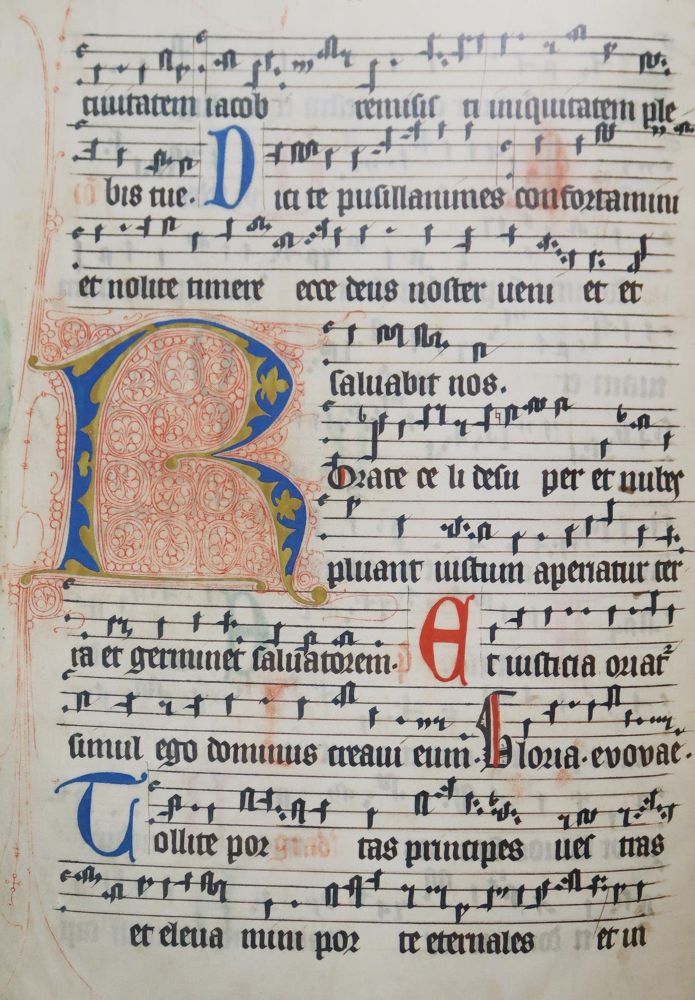 ciuitatem iacob remisisti iniquitatem ple
bis tue. Dicite pusillanimes confortamini
et nolite timere ecce deus noster ueni et et
saluabit nos.
Rorate celi desu per et nubes
pluant iustum aperiatur ter
ra et germinet saluatorem. Et iusticia oriat²
simul ego dominus creaui eum. Gloria. evovae.
Tollite por tas principes ues tras
et eleua mini por te eternales et in